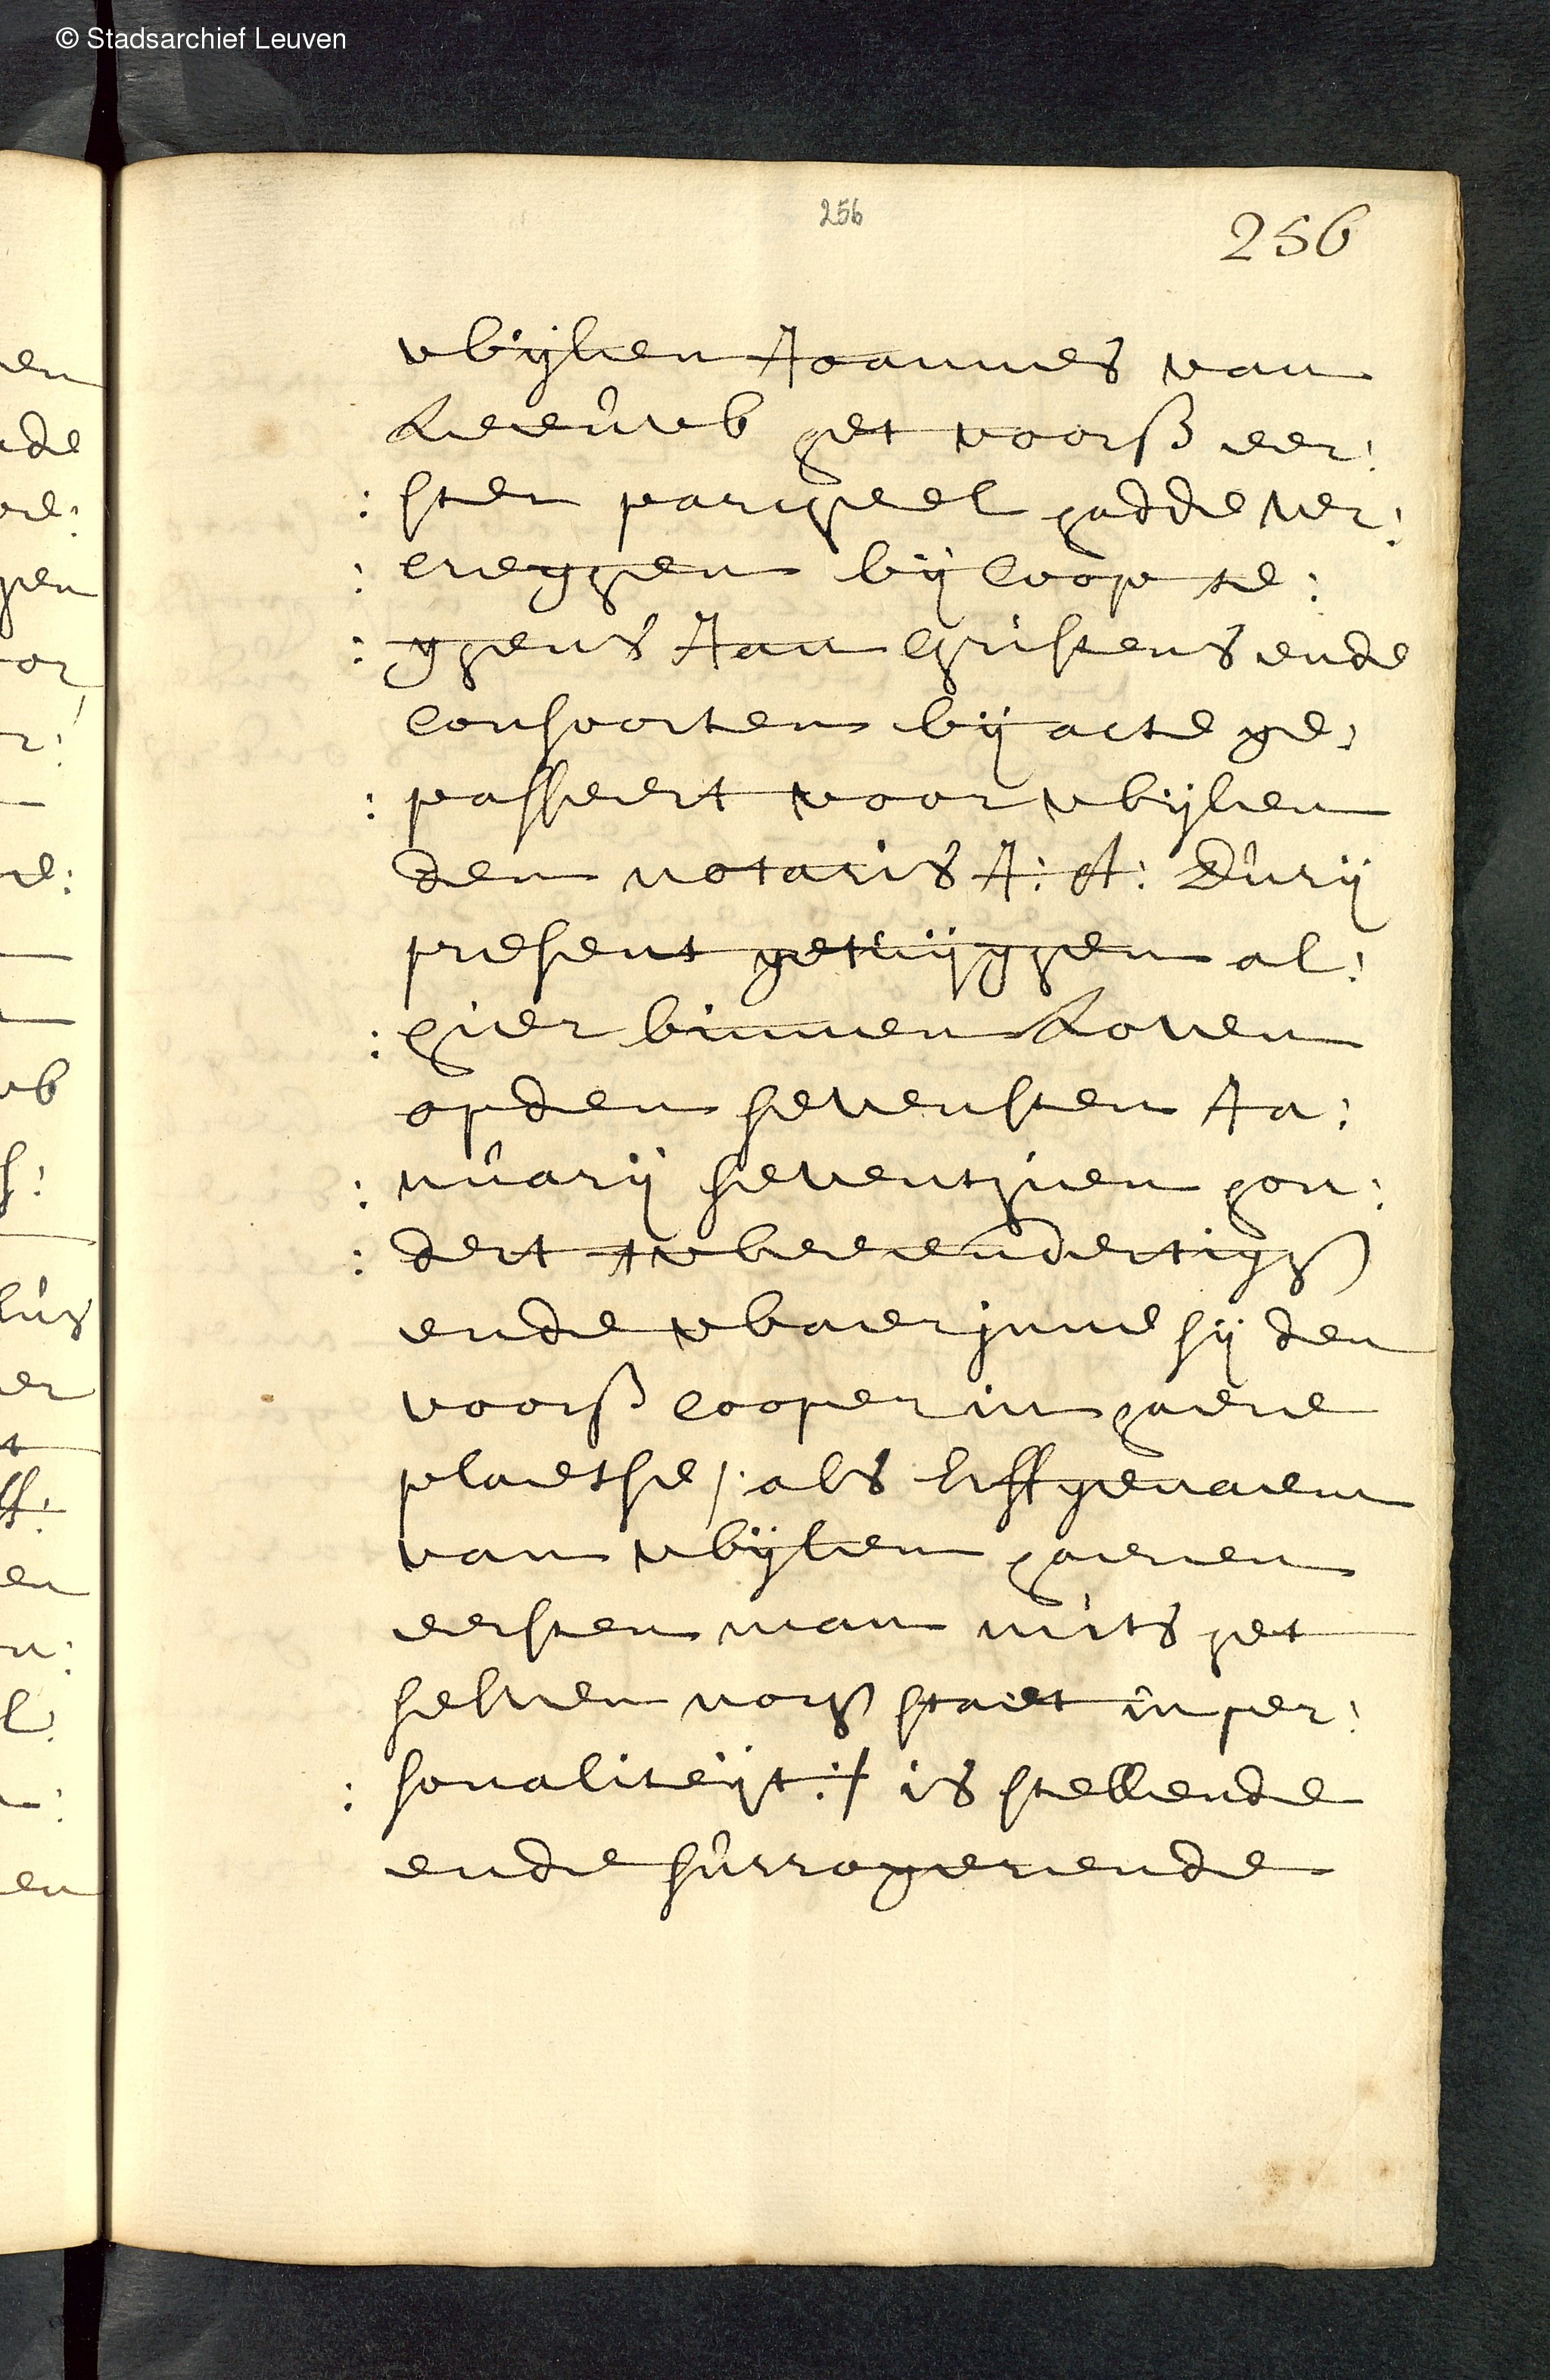 © Stadsarchief Leuven
256
256
wijlen Joannes van
Leeuw het voorß eer:
: sten parcheel hadde ver:
: creggen bij coop te:
: gghens Jan Christens ende
consoorten bij acte ge:
: passeert voor wijlen
den notaris J: A: Durij
present getuijgghen al:
: hier binnen Loven
opden sevensten Ja:
: nuarij seventhien hon:
: dert tweeendertigh
ende waer inne sij den
voorß cooper in haere
plaetse /: als erffgenaem
van wijlen haeren
eersten man mits het
selven noch staet in per:
: sonaliteijt :/ is stellende
ende surrogerende